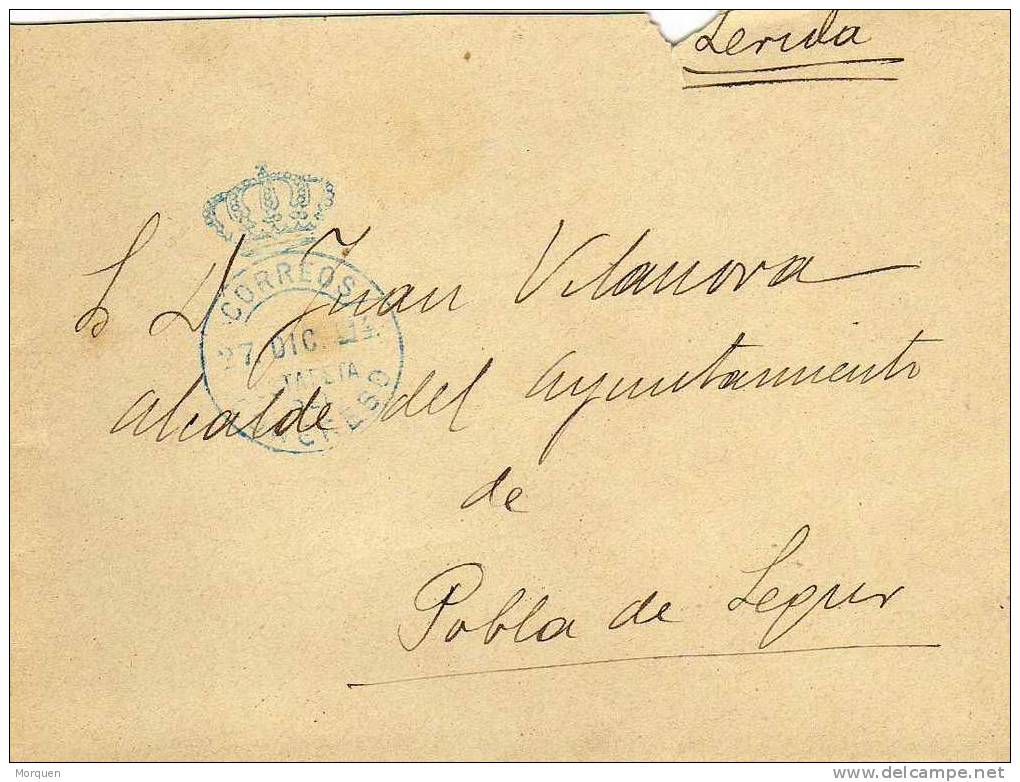 Lerida
S D Juan Vilanova
Alcalde del Ayuntamiento
de
Pobla de Segur
CORREOS
27 DIC
Morquen
delcampe.net